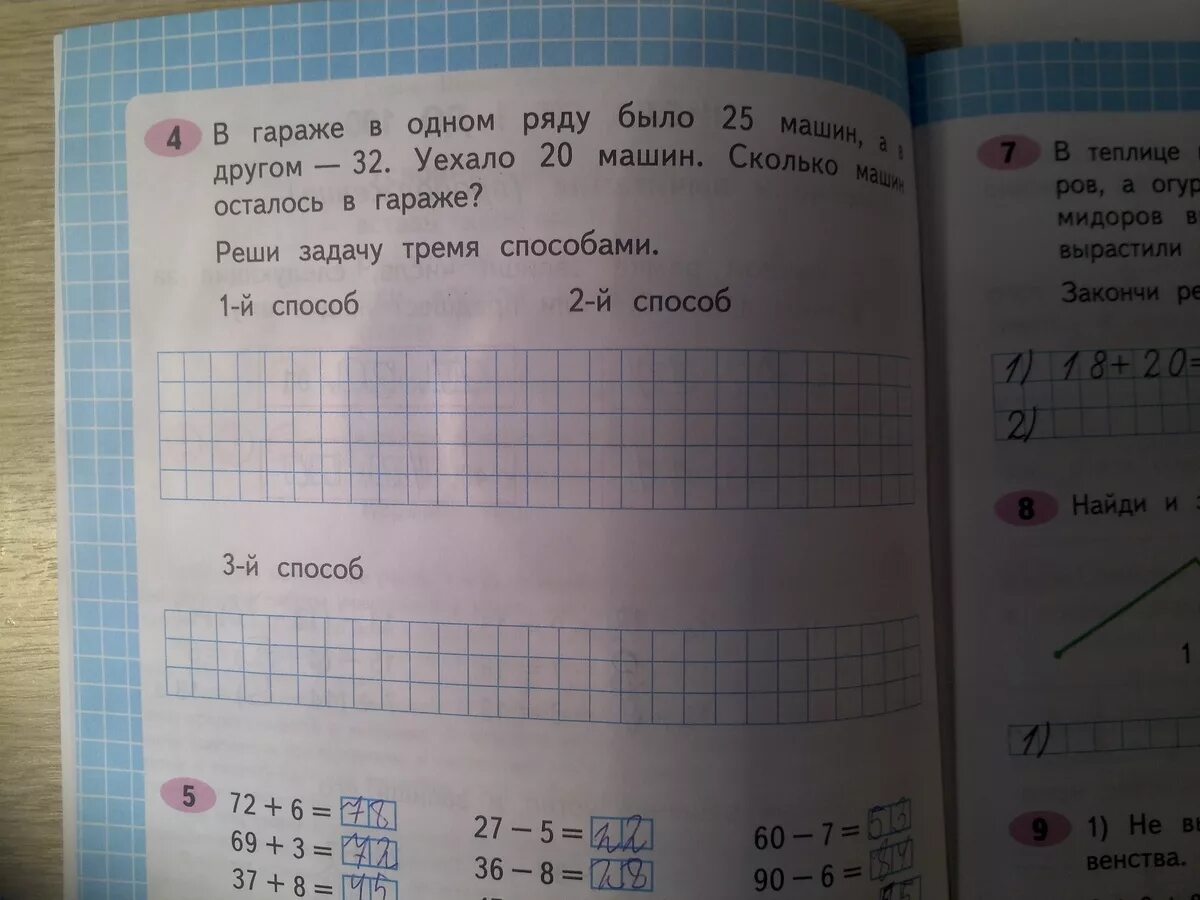 4 В гараже в одном ряду было 25 машин, а в
другом — 32. Уехало 20 машин. Сколько машин
осталось в гараже?
Реши задачу тремя способами.
1-й способ 2-й способ
3-й способ
5 72 + 6 = 78 27 − 5 = 22 60 − 7 = 53
69 + 3 = 72 36 − 8 = 28 90 − 6 = 84
37 + 8 = 45
7 В теплице
ров, а огур
мидоров в
вырастили
Закончи ре
1) 18+20=
2)
8 Найди и
1
1)
9 1) Не вы
венства.